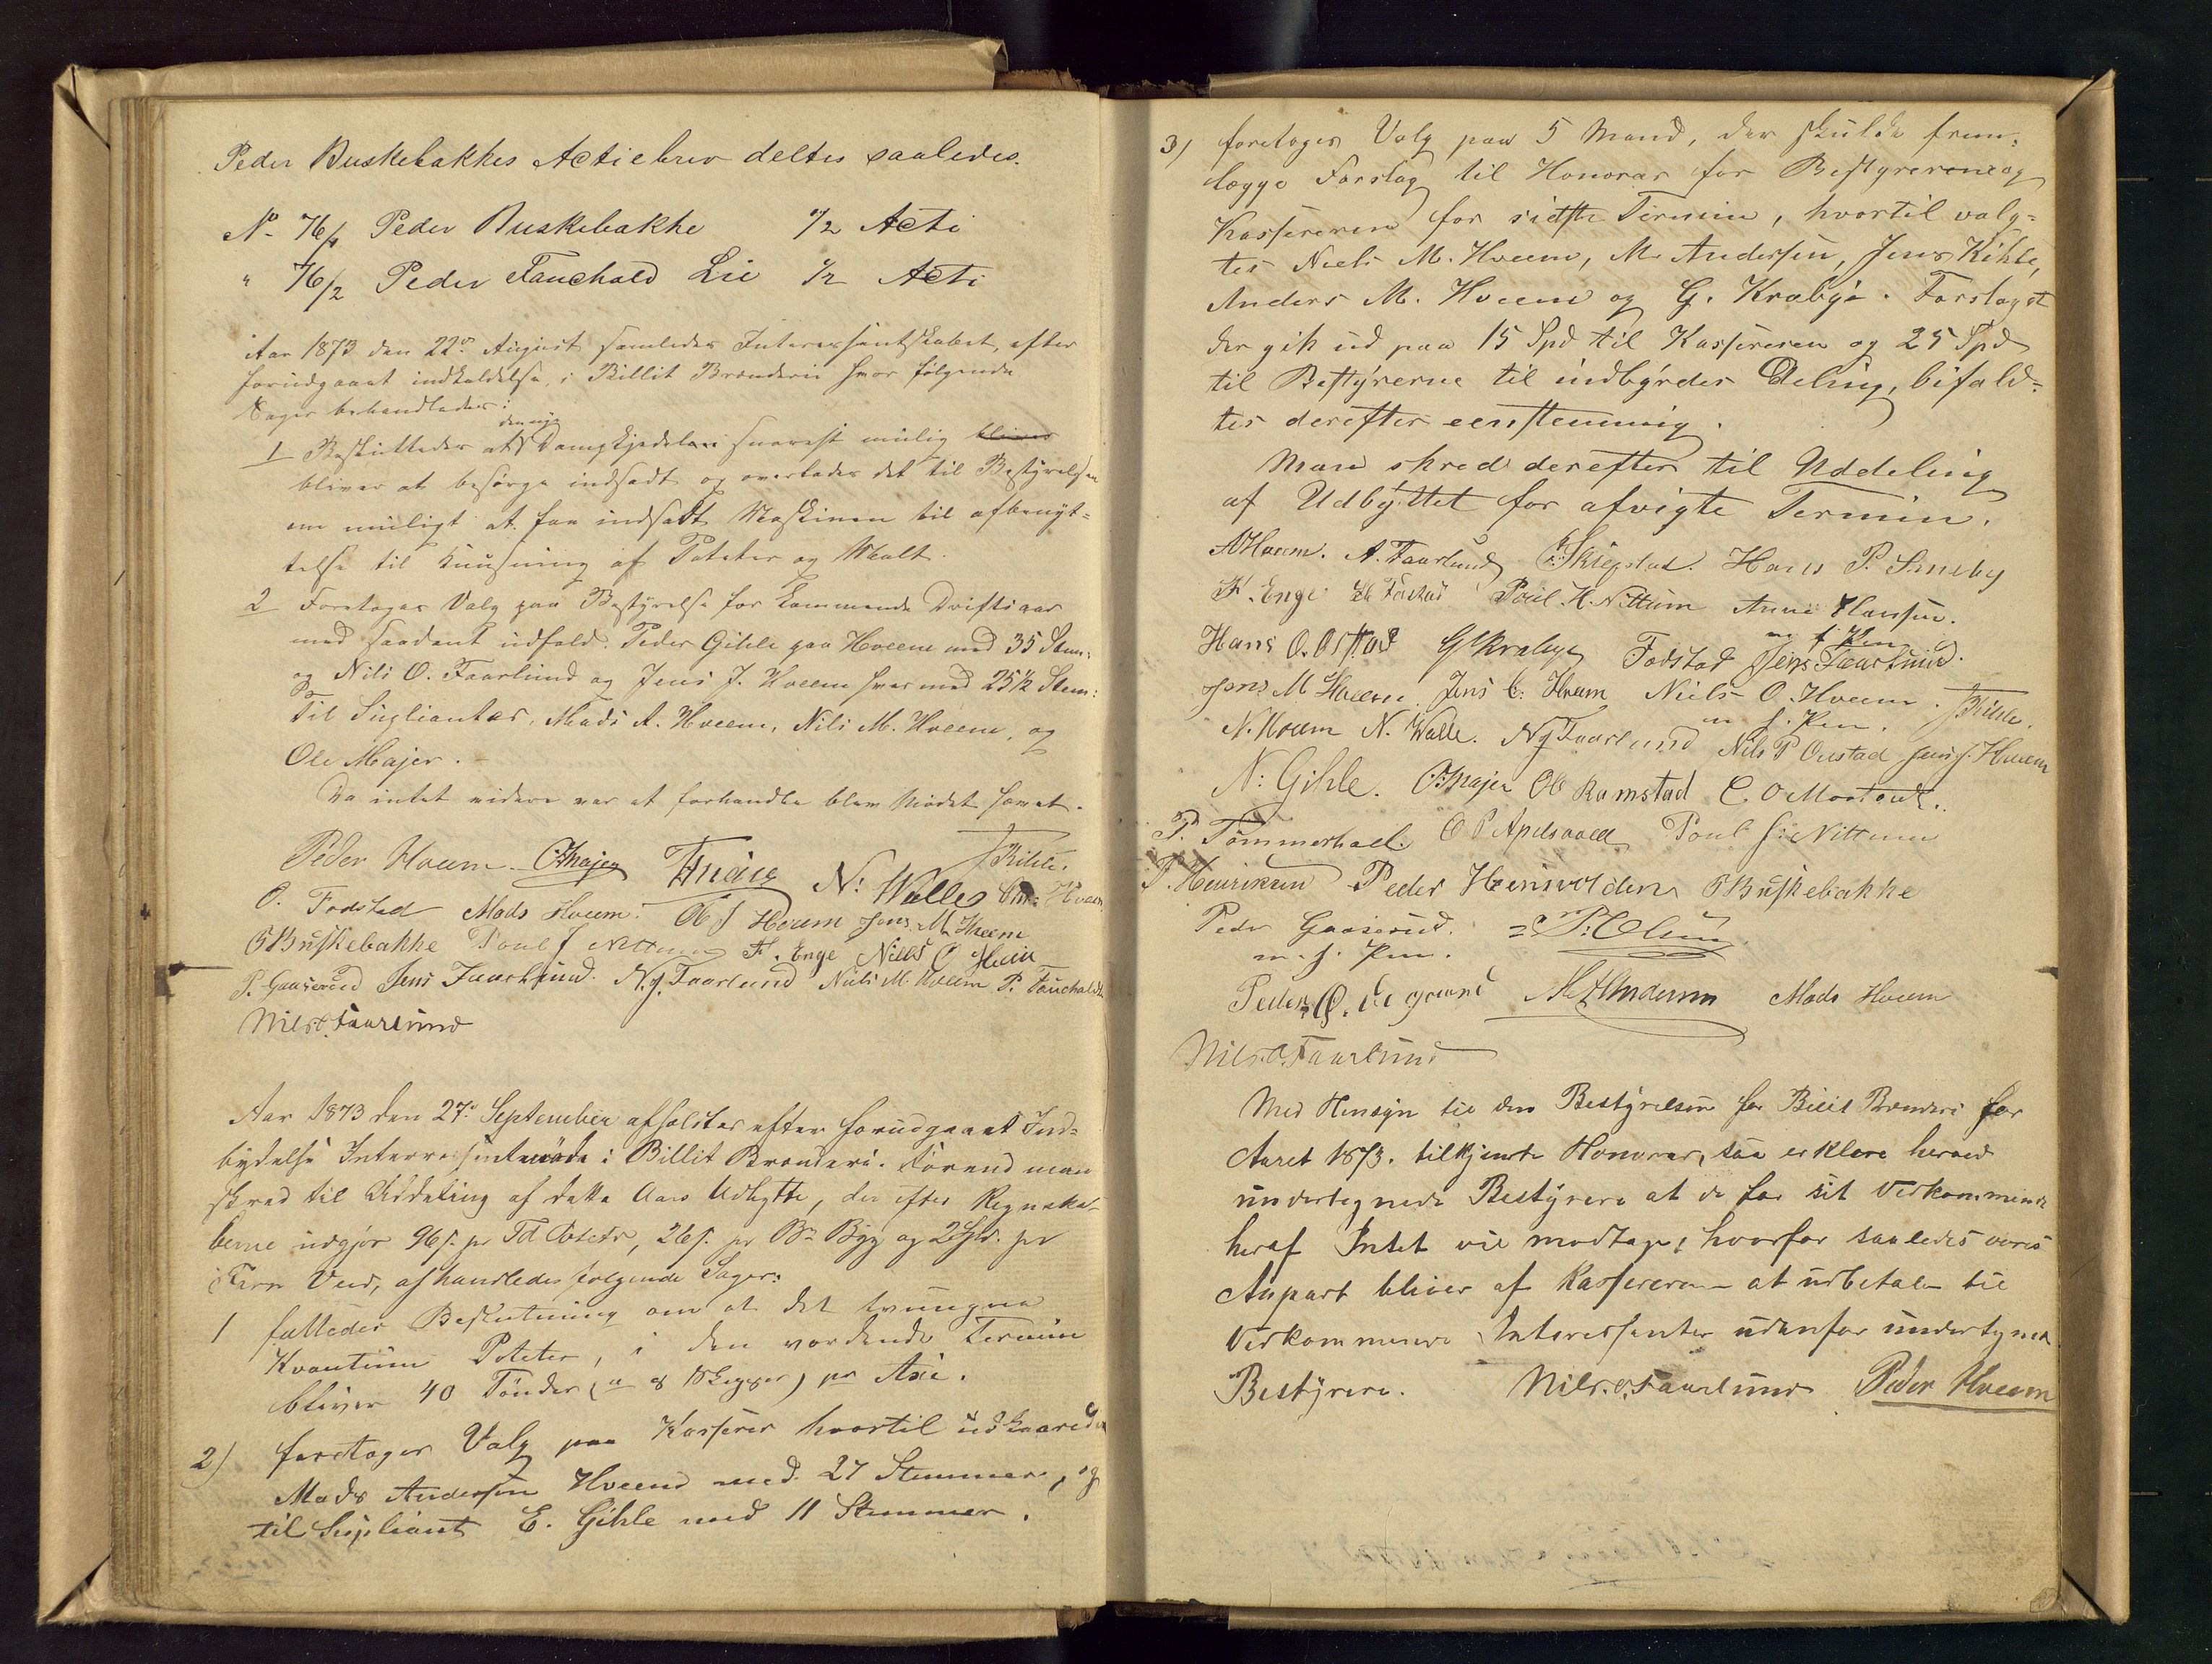 Peder Buskebakkes Actiebrev deltes saaledes.
No 76/1 Peder Buskebakke 1/2 Acti
" 76/2 Peder Fauchald Lie 1/2 Acti
Aar 1873 den 22de August samledes Interessentskabet, efter
forudgaaet indkaldelse, i Billit Brænderie hvor følgende
Sager behandledes:
1 Besluttedes at den nye Dampkjedel snarest mulig bliver
bliver at besørge indsadt og overlades det til Bestyrelsen
om muligt at faa indsadt Maskinen til afbenyt-
telse til Knusning af Poteter og Malt.
2 Foretoges Valg paa Bestyrelse for kommende Driftsaar
med saadant udfald. Peder Gihle paa Hveem med 35 Stem:
og Nils O. Faarlund og Jens J. Hveem hver med 25 1/2 Stem:
Til Suplianter, Mads A. Hveem, Nils M. Hveem, og
Ole Majer.
Da intet videre var at forhandle blev Mødet hævet.
Peder Hveem. O Majer N: Walle J Kihle.
O. Fodstad Mads Hveem. Ole J Hveem Jens M. Hveem
Buskebakke Poul J Nittum F. Enge Niels O Hveem
P. Gaaserud Jens Faarlund. N. J. Faarlund Niels M. Hveem P. Fauchald
Nils O. Faarlund
Aar 1873 den 27de September afholdtes efter forudgaaet Ind-
bydelse Interessentmøde i Billit Brænderi. Førend man
skred til Uddeling af dette Aars Udbytte, der efter Regnska-
berne udgjør 96 s. pr Td Poteter, 26 s. pr Bg Byg og 2 Spd. pr
Favn Ved, afhandledes følgende Sager:
1 fattedes Beslutning om at det tvungne
Kvantum Poteter, i den vordende Termin
bliver 40 Tønder (a 8 Skjepper) pr Axie.
2) foretoges Valg paa Kasserer hvortil udkaaredes
Mads Andersen Hveem med 27 Stemmer, og
til Supliant E. Gihle med 11 Stemmer.
3) foretoges Valg paa 5 Mand, der skulde frem-
lægge Forslag til Honorar for Bestyrerene og
Kassereren for sidste Termin, hvortil valg-
tes Niels M. Hveem, M. Andersen, Jens Kihle,
Anders M. Hveem og G. Kræbye. Forslaget
der gik ud paa 15 Spd til Kassereren og 25 Spd
til Bestyrerne til indbyrdes Deling, bifald-
tes derefter eenstemmig.
Man skred derefter til Uddeling
af Udbyttet for afvigte Termin.
A Hveem. A. Faarlund Skiepstad. Hans P. Sineby
F. Enge Fodstad Poul. H. Nittum Arne Hansen.
m f Pen
Hans O. Ofstad G Kræbye Fodstad Jens Faarlund.
Jens M Hveem Jens C. Hveem Niels O. Hveem. J Kihle.
m f. Pen.
N. Hveem N. Walle. N J Faarlund Nils P Onstad Jens J. Hveem
N: Gihle. O Majer Ole Ramstad C O Mortens.
P. Tømmerhoel. O P Apelsvold Poul J: Nittum
P. Henriksen Peder Heensvolden Buskebakke
Peder Gaaserud. P: Olsen
m. f. Pen.
Peder O. M Andersen Mads Hveem
Nils O. Faarlund
Med Hensyn til den Bestyrelsen for Bilit Brænderi for
Aaret 1873. tilkjendte Honorar, saa erklære herved
undertegnede Bestyrere at de for sit Vedkommende
heraf Intet vil modtage, hvorfor saaledes vores
Anpart bliver af Kassereren at udbetale til
Vedkommende Interessenter udenfor undertegnede
Bestyrere. Nils. O. Faarlund Peder Hveem